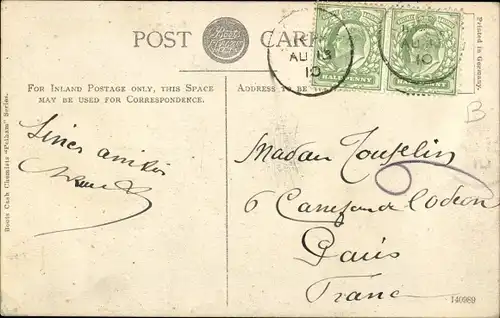 POST CARD
Printed in Germany.
AU
10
AU
10
HALFPENNY
HALFPENNY
FOR INLAND POSTAGE ONLY, THIS SPACE
MAY BE USED FOR CORRESPONDENCE.
ADDRESS TO BE
B
Boots Cash Chemists "Pelham" Series.
Madam
6 Carrefour de l'Odéon
Paris
France
140989